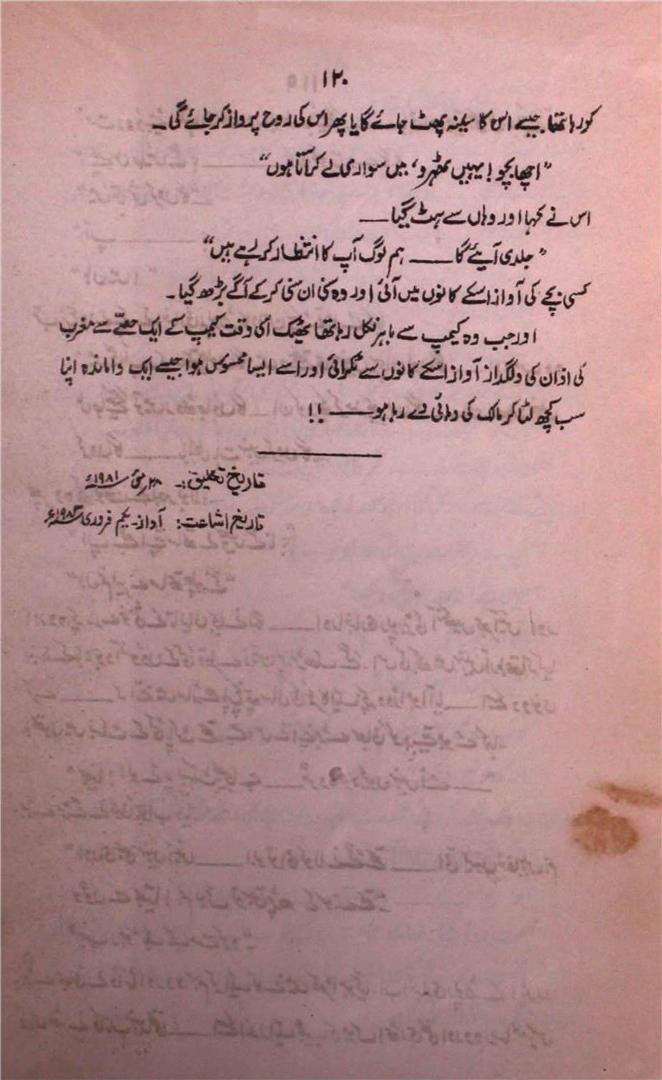 ۱۲۰
کور ہا تھا جیسے اس کا سینہ پھٹ جائے گا یا پھر اس کی روح پرواز کر جائے گی۔
"اچھا بچو! یہیں ٹھہرو، میں سواری لے کر آتا ہوں"
اس نے کہا اور وہاں سے ہٹ گیا۔
"جلدی آیئے گا ۔۔۔ ہم لوگ آپ کا انتظار کر رہے ہیں"
کسی بچے کی آواز اسکے کانوں میں آئی اور وہ سنی ان سنی کر کے آگے بڑھ گیا۔
اور جب وہ کیمپ سے باہر نکل رہا تھا ٹھیک اسی وقت کیمپ کے ایک حصّے سے مغرب
کی اذان کی دلگداز آواز اسکے کانوں سے ٹکرائی اور اسے ایسا محسوس ہوا جیسے ایک واماندہ اپنا
سب کچھ لٹا کر مالک کی دہائی دے رہا ہو ۔۔۔ !!
تاریخ تخلیق:۔ ۲۸ مئی ۱۹۸۱ء
تاریخ اشاعت: آواز۔ یکم فروری ۱۹۸۳ء